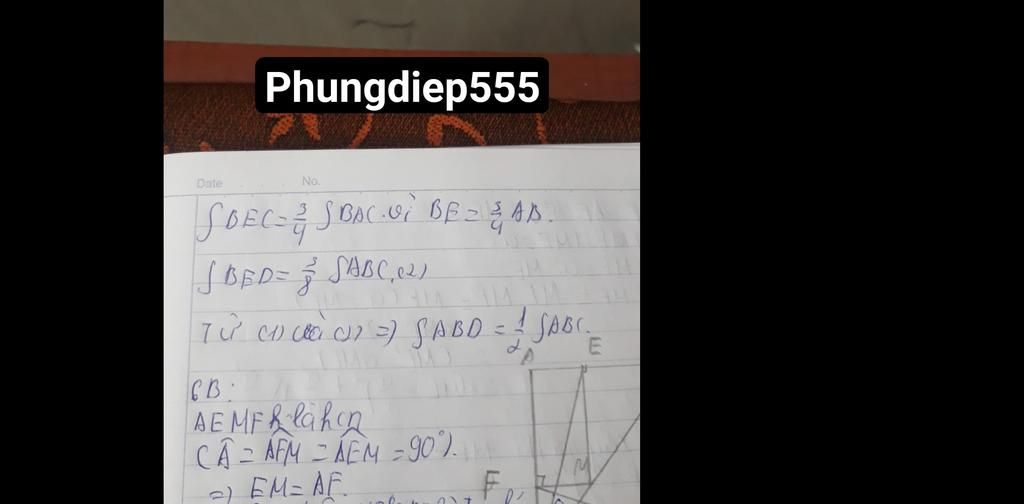 Phungdiep555
Date No.
SBEC = 3/4 SBAC. Vì BE = 3/4 AB.
SBED = 3/8 SABC (2)
Từ (1) và (2) => SABD = 1/2 SABC.
A E
6B:
AEMF là hcn
(Â = AFM = AEM = 90°).
M
=> EM = AF.
F